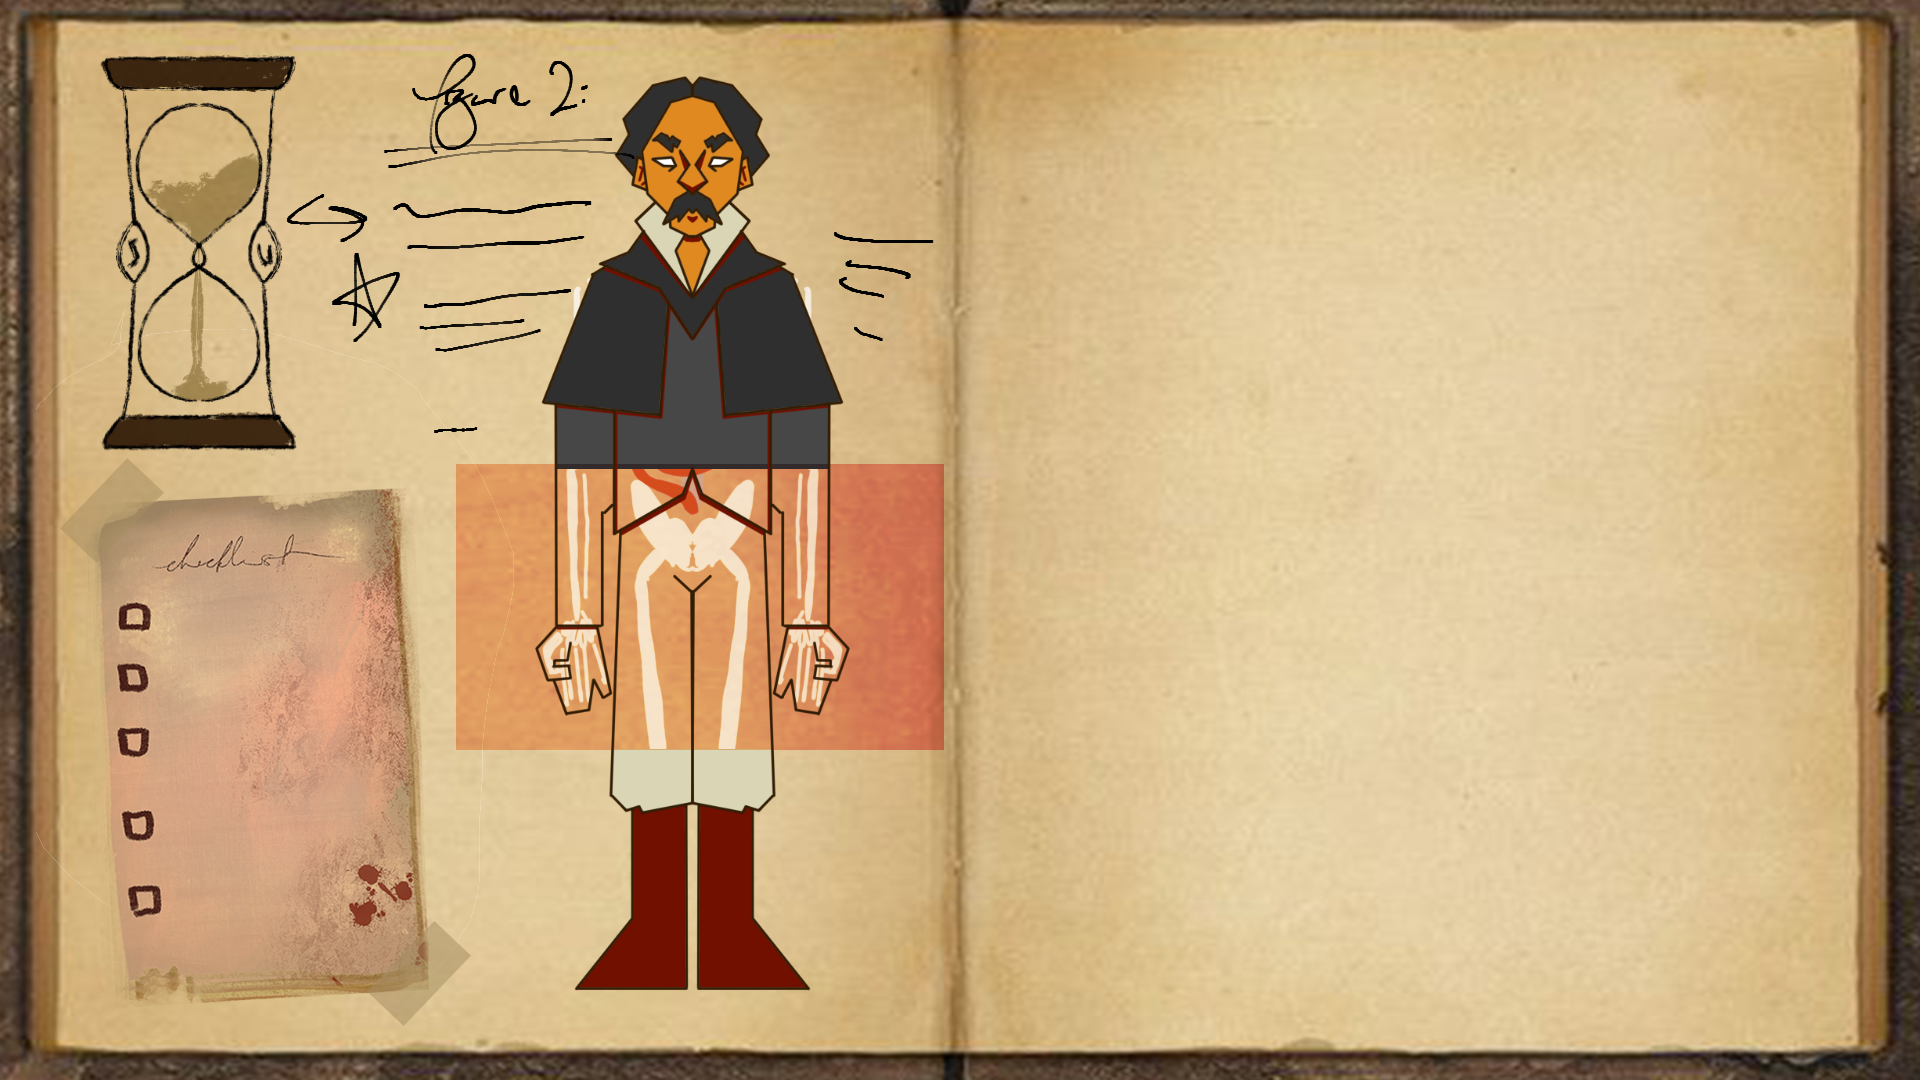 figure 2:
S U
checklist